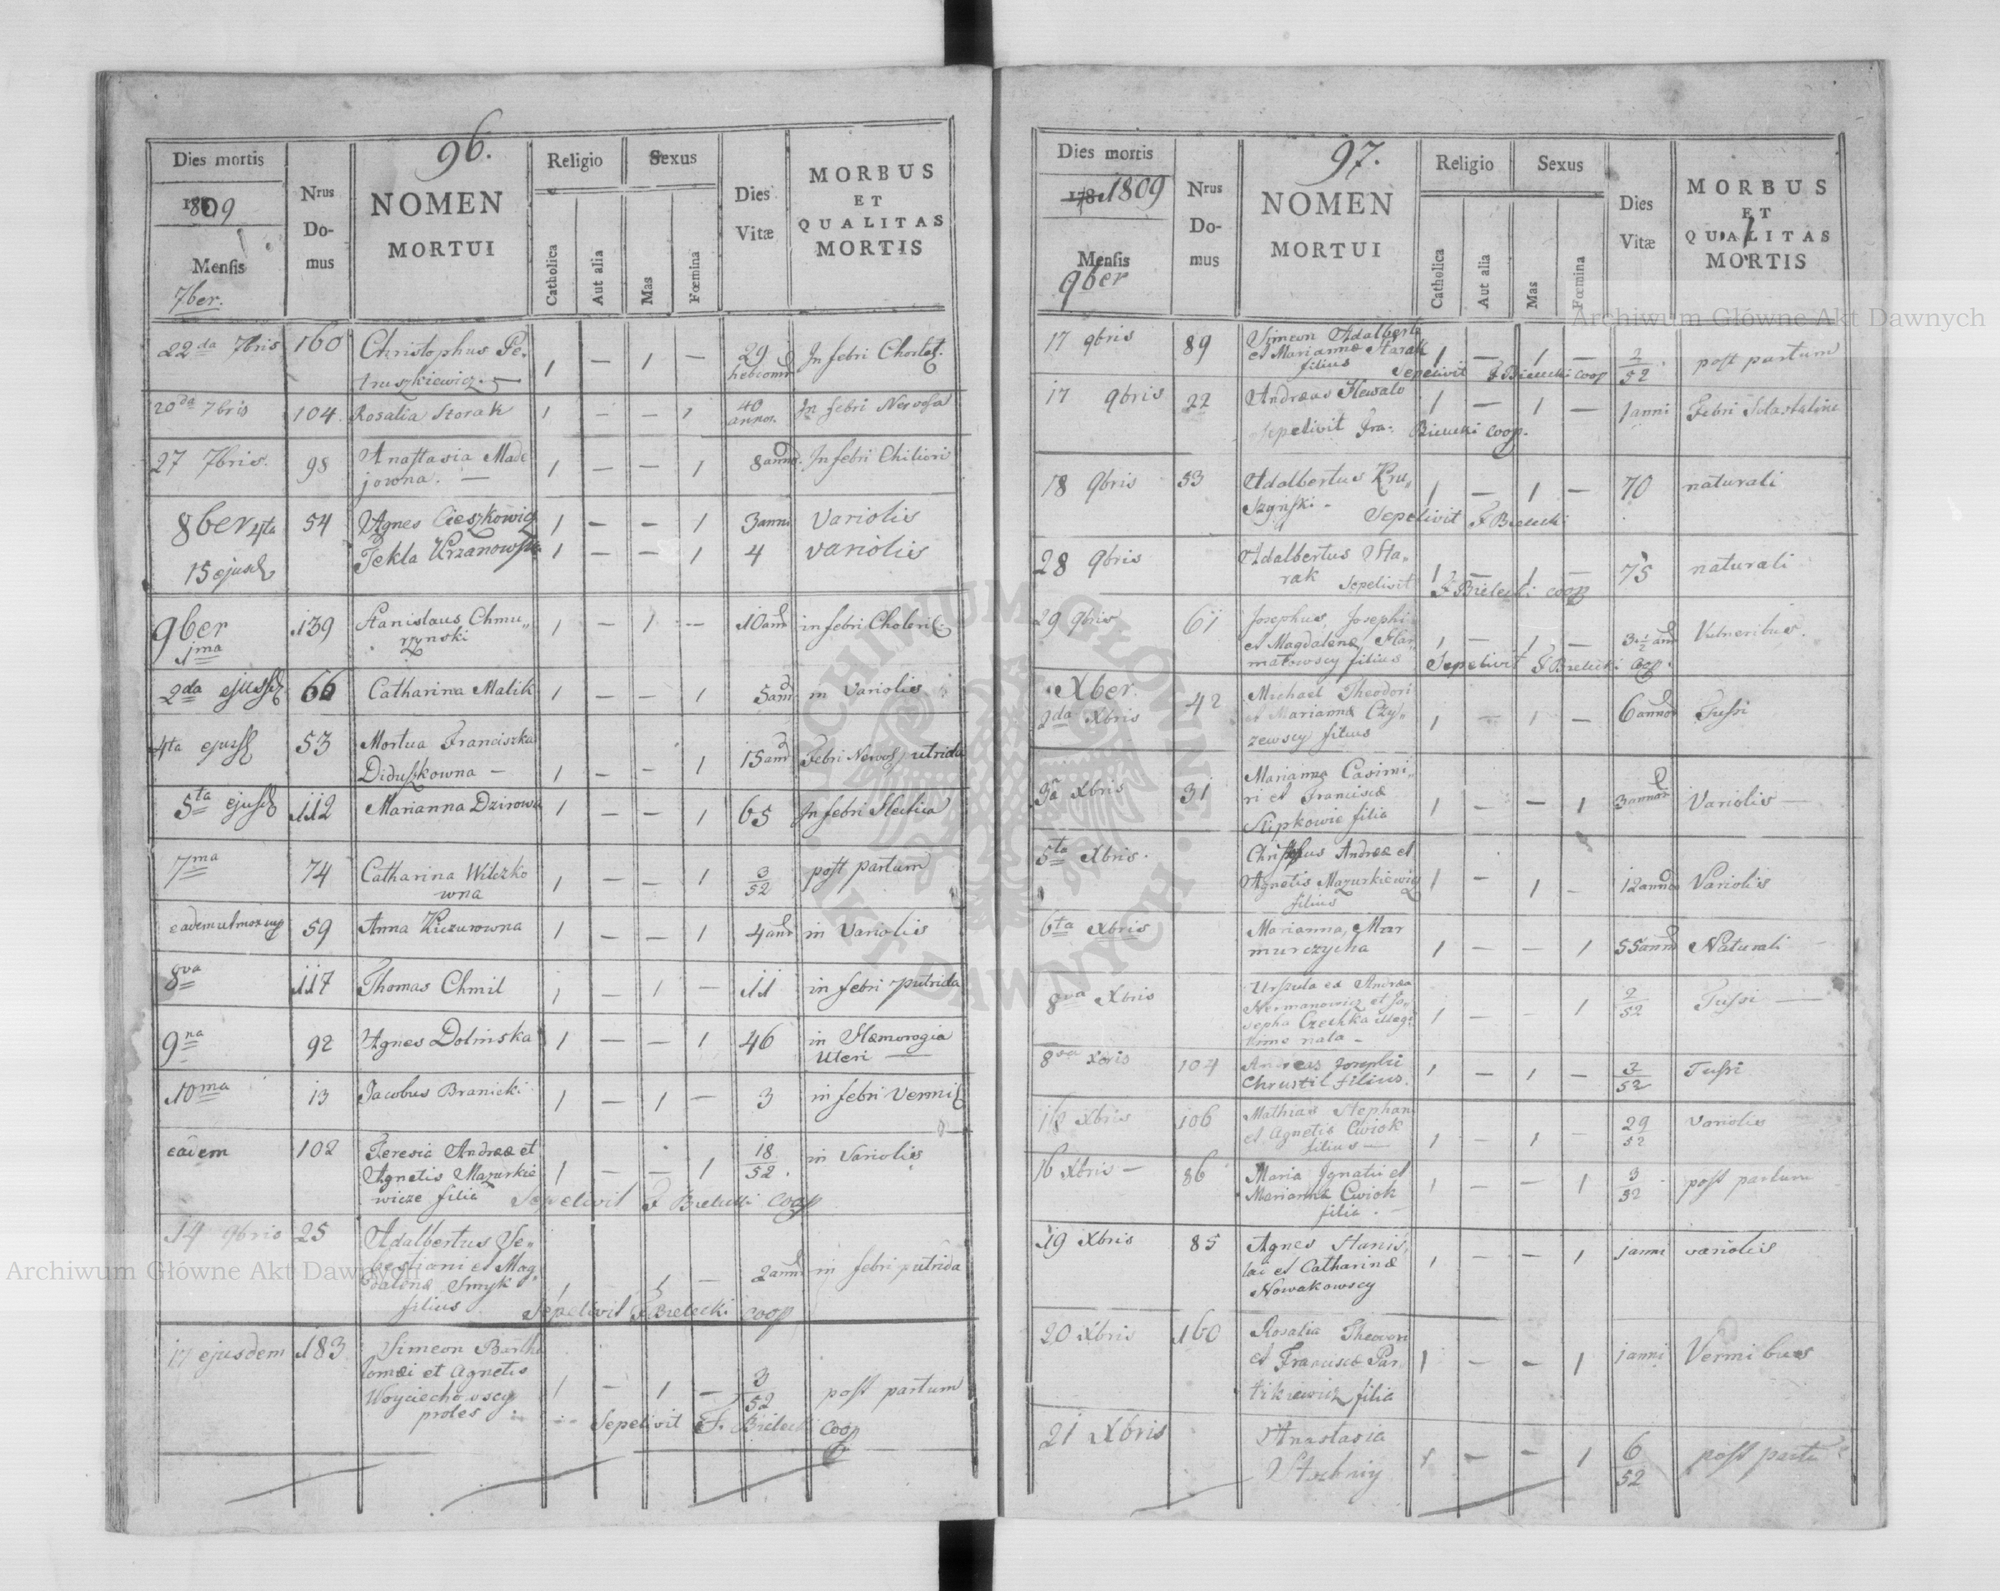 96.
Dies mortis
1809
Mensis
7ber.
Nrus
Do-
mus
NOMEN
MORTUI
Religio
Catholica
Aut alia
Sexus
Mas
Fœmina
Dies
Vitæ
MORBUS
ET
QUALITAS
MORTIS
22da 7bris 160 Christophus Pe-
truszkiewicz 1 — 1 — 29 hebdomad In febri
20da 7bris 104. Rosalia Storak 1 — — 1 40 annor. In febri Nervosa
27 7bris. 98 Anastasia Made
jowna. — 1 — — 1 8 annor. In febri
8ber 4ta 54 Agnes Cieszkowicz 1 — — 1 3 anni Variolis
15 ejusd Tekla Krzanowska 1 — — 1 4 variolis
9ber
1ma 139 Stanislaus Chmu„
rzynski 1 — 1 — 10 ann in febri
2da ejusd 66 Catharina Malik 1 — — 1 5 ann in Variolis
4ta ejusd 53 Mortua Franciszka
Diduszkowna — 1 — — 1 15 ann Febri Nervos putrida
5ta ejusd 112 Marianna Dzirowa 1 — — 1 65 In febri Hectica
7ma 74 Catharina Wilczko
wna 1 — — 1 3/52 post partum
eadem 59 Anna Kuzurowna 1 — — 1 4 ann in Variolis
8va 117 Thomas Chmil 1 — 1 — 11 in febri putrida
9na 92 Agnes Dolinska 1 — — 1 46 in Hæmorogia
Uteri —
10ma 13 Jacobus Branicki 1 — 1 — 3 in febri
eadem 102 Teresia Andreæ et
Agnetis Mazurkie
wicze filia 1 — — 1 18/52. in Variolis
Sepelivit F Bielecki Coop
14 9bris 25 Adalbertus Se-
bestiani et Mag-
dalenæ Smyk
filius 1 — 1 — 2 anni in febri putrida
Sepelivit F. Bielecki coop
17 ejusdem 183 Simeon Barth
lomæi et Agnetis
Woyciechowscy
proles 1 — 1 — 3/52 post partum
Sepelivit F. Bielecki Coop
97.
Dies mortis
178 1809
Mensis
9ber
Nrus
Do-
mus
NOMEN
MORTUI
Religio
Catholica
Aut alia
Sexus
Mas
Fœmina
Dies
Vitæ
MORBUS
ET
QUALITAS
MORTIS
17 9bris 89 Simeon Adalberti
et Mariannæ Starak
filius 1 — 1 — 2/52 post partum
Sepelivit F Bielecki coop
17 9bris 22 Andreas 1 — 1 — 1 anni Febri
Sepelivit Fra. Bielecki Coop.
18 9bris 53 Adalbertus Kru„
szynski - 1 — 1 — 70 naturali
Sepelivit F Bielecki
28 9bris Adalbertus Sta-
rak 1 — 1 — 75 naturali
Sepelivit F Bielecki coop
29 9bris 61 Josephus, Josephi
et Magdalenæ
filius 1 — 1 — 3 1/2 ann Vulneribus.
Sepelivit F Bielecki Coop.
Xber.
2da Xbris 42 Michael Theodori
et Mariannæ Czy„
zewscy filius 1 — 1 — 6 annor Tussi
3a Xbris 31 Marianna Casimi„
ri et Franciscæ
filia 1 — — 1 3 annor Variolis —
5ta Xbris. Andreæ et
Agnetis Mazurkiewicz
filius 1 — 1 — 12 annor Variolis
6ta Xbris Marianna, Mar
murczycha 1 — — 1 55 ann Naturali
8va Xbris Urszula ex Andrea
Hermanowicz et Jo-
sepha Czechka
nata - 1 — — 1 2/52 Tussi —
8va Xbris 104 Andreas Josephi
Chrustil filius. 1 — 1 — 3/52 Tussi
Xbris 106 Mathias Stephani
et Agnetis Cwiok
filius — 1 — 1 — 29/52 Variolis
16 Xbris — 86 Maria Ignatii et
Mariannæ Cwiok
filia. 1 — — 1 3/52 post partum
19 Xbris 85 Agnes Stanis,
lai et Catharinæ
Nowakowscy 1 — — 1 1 anni variolis
20 Xbris 160 Rosalia Theodori
et Franciscæ Par
tikiewicz filia 1 — — 1 1 anni Vermibus
21 Xbris Anastasia 1 — — 1 6/52 post partu
Archiwum Główne Akt Dawnych
Archiwum Główne Akt Dawnych
ARCHIWUM GŁÓWNE
AKT DAWNYCH